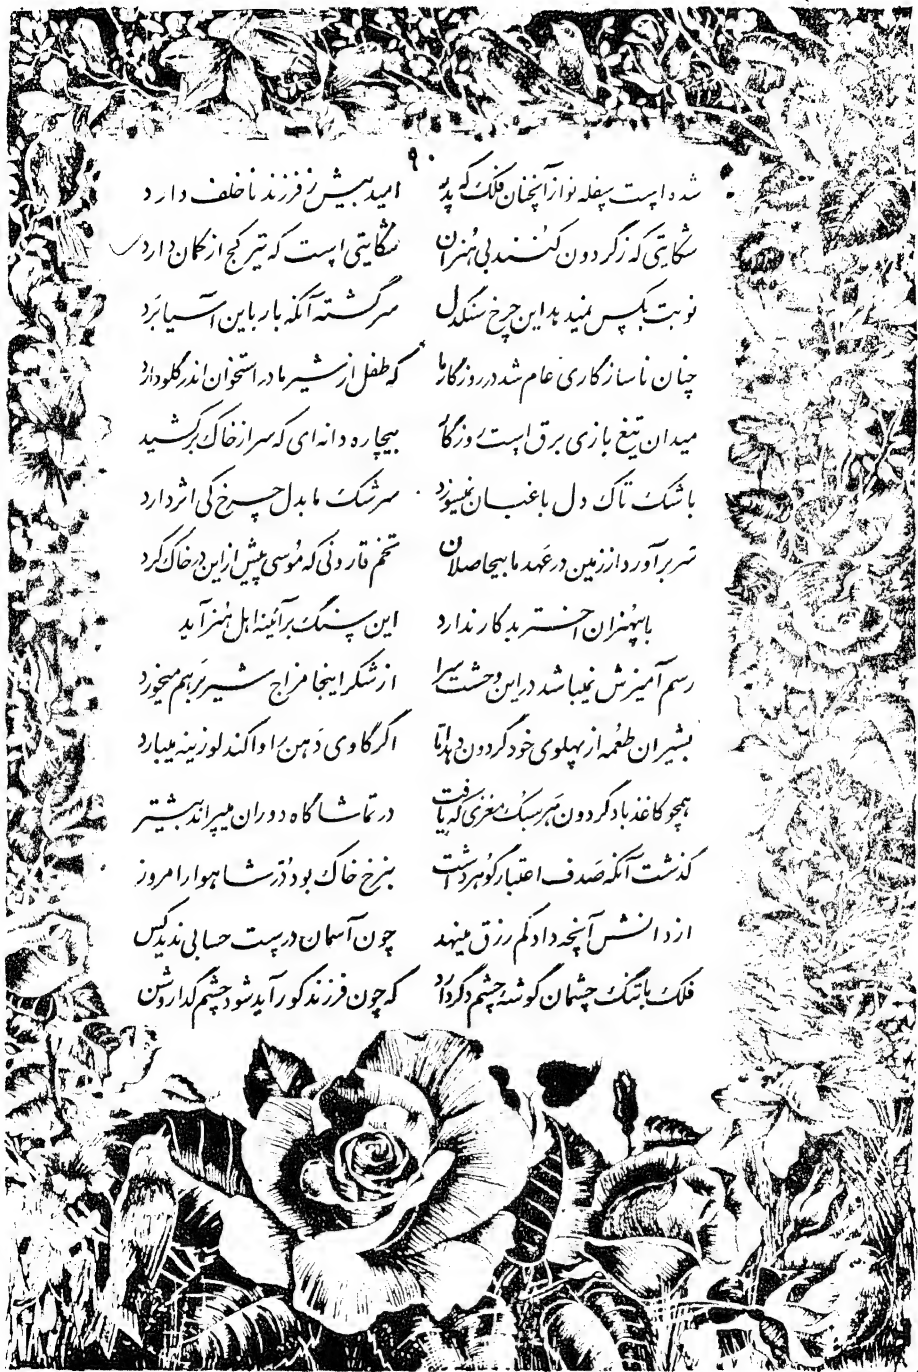 ۹۰
شده است سفله نواز آنچنان فلک که پدر امید بیش ز فرزند ناخلف دارد
شکایتی که ز گردون کنند بی هنران شکایتی است که تیر کج از کمان دارد
نوبت بکس نمیدهد این چرخ سنگدل سرگشته آنکه بار باین آسیا برد
چنان ناسازگاری عام شد در روزگار ما که طفل از شیر مادر استخوان اندر گلو دارد
میدان تیغ بازی برق است روزگار بیچاره دانه ای که سر از خاک برکشید
با شک تاک دل باغبان نمیسوزد سرشک ما بدل چرخ کی اثر دارد
سر برآورد از زمین در عهد ما بیحاصلان تخم قارونی که موسی پیش از این در خاک کرد
با بیهنران اختر بد کار ندارد این سنگ بر آئینه اهل هنر آید
رسم آمیزش نمیباشد در این وحشت سرا از شکر اینجا مزاج شیر بر هم میخورد
بشیران طعمه از پهلوی خود گردون دهد اما اگر گاوی دهن را وا کند لوزینه میبارد
همچو کاغذ باد گردون هر سبک مغزی که یافت در تماشا گاه دوران میپراند بیشتر
گذشت آنکه صدف اعتبار گوهر داشت بنرخ خاک بود در شاهوار امروز
از دانش آنچه داد کم رزق مینهد چون آسمان درست حسابی ندید کس
فلک با تنگ چشمان گوشه چشم دگر دارد که چون فرزند کور آید شود چشم گدا روشن